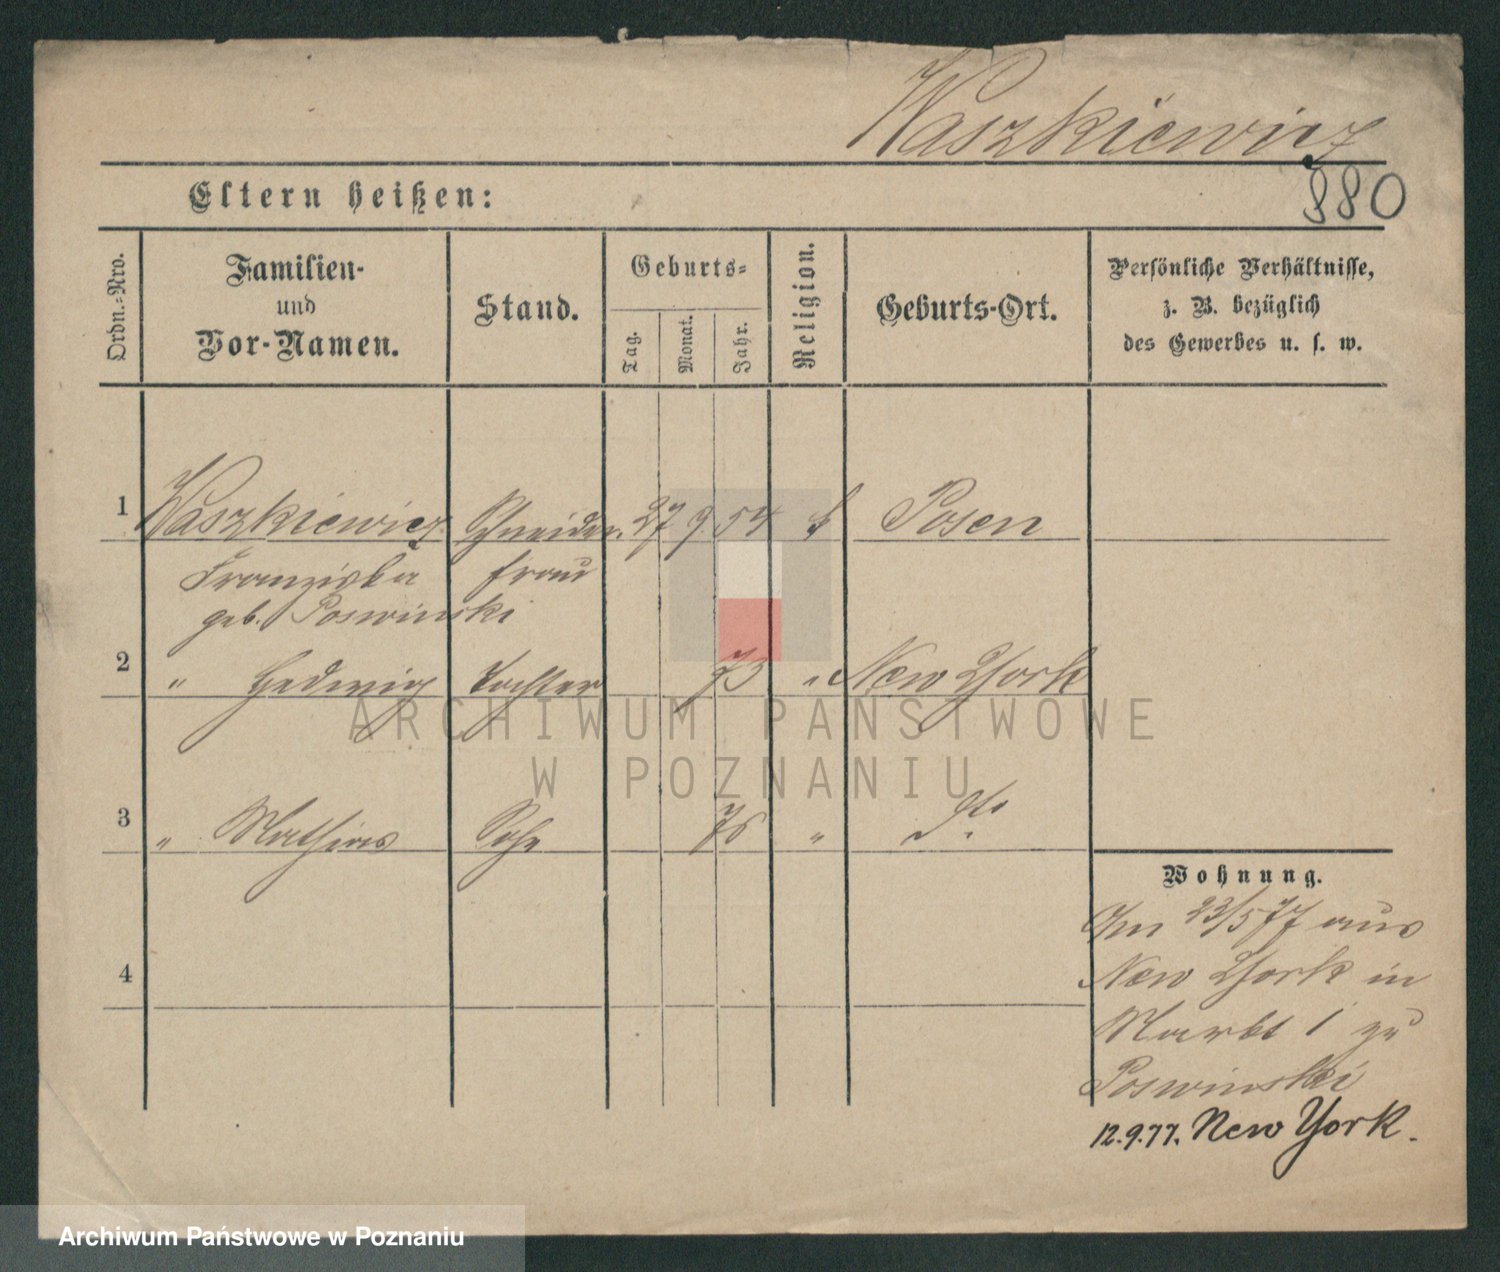 Waszkiewicz
880
Eltern heißen:
Ordn.-Nro.
Familien-
und
Vor-Namen.
Stand.
Geburts-
Tag.
Monat.
Jahr.
Religion.
Geburts-Ort.
Persönliche Verhältnisse,
z. B. bezüglich
des Gewerbes u. s. w.
1 Waszkiewicz Schneider 27 9. 54 k Posen
Franziska frau
geb. Poswinski
2 " Hedwig Tochter 73 " New York
3 " Mathias Sohn 76 " dto
4
Wohnung.
Am 23/5 77 aus
New York in
Markt 1 zu
Poswinski
12.9.77. New York.
ARCHIWUM PAŃSTWOWE
W POZNANIU
Archiwum Państwowe w Poznaniu